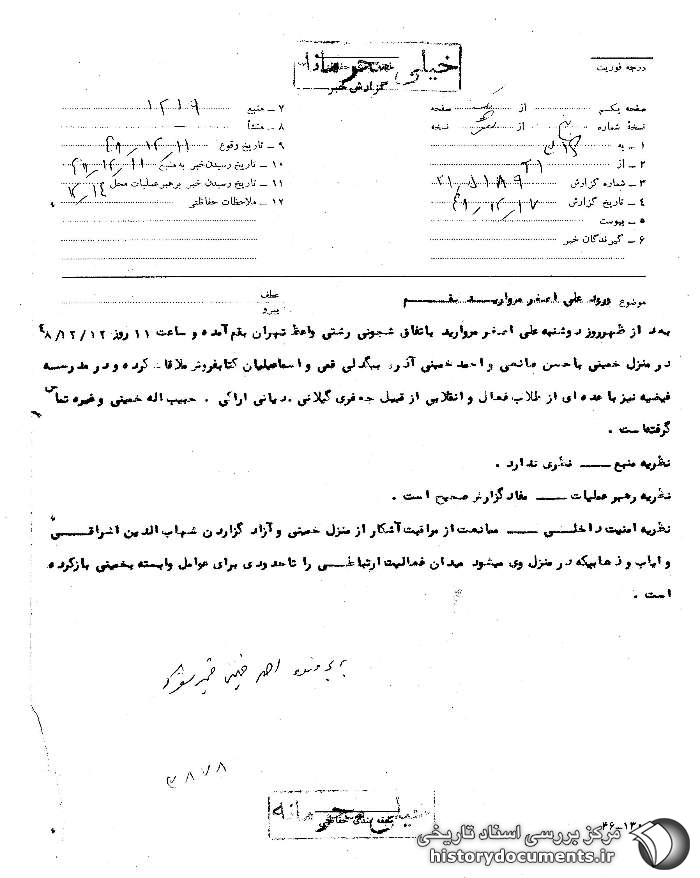 خیلی محرمانه
گزارش خبر
درجه فوریت
صفحه یکم از یک صفحه
نسخه شماره از نسخه
۱ ـ به ۳۱۲
۲ ـ از ۲۱
۳ ـ شماره گزارش
۴ ـ تاریخ گزارش ۴۸/۱۲/۱۷
۵ ـ پیوست
۶ ـ گیرندگان خبر
۷ ـ منبع ۱۲۱۹
۸ ـ منشأ ـ
۹ ـ تاریخ وقوع ۴۸/۱۲/۱۱
۱۰ ـ تاریخ رسیدن خبر به منبع ۴۸/۱۲/۱۱
۱۱ ـ تاریخ رسیدن خبر برهبر عملیات محل ۱۲/۱۴
۱۲ ـ ملاحظات حفاظتی
موضوع ورود علی اصغر مروارید بقم
عطف
پیرو
بعد از ظهر روز دوشنبه علی اصغر مروارید باتفاق شجونی رشتی واعظ تهران بقم آمده و ساعت ۱۱ روز ۴۸/۱۲/۱۲
در منزل خمینی با حسن صانعی و احمد خمینی آذری بیگدلی قمی و اسماعیلیان کتابفروش ملاقات کرده و در مدرسه
فیضیه نیز با عده ای از طلاب فعال و انقلابی از قبیل جعفری گیلانی ، دیانی اراکی ، حبیب اله خمینی و غیره تماس
گرفته است .
نظریه منبع ـــ نظری ندارد .
نظریه رهبر عملیات ـــ مفاد گزارش صحیح است .
نظریه امنیت داخلی ـــ ممانعت از مراقبت آشکار از منزل خمینی و آزاد گزاردن شهاب الدین اشراقی
و ایاب و ذهابیکه در منزل وی میشود میدان فعالیت ارتباطی را تا حدودی برای عوامل وابسته بخمینی باز کرده
است .
به پرونده احمد خمینی ضمیمه شود
خیلی محرمانه
طبقه بندی حفاظتی
مرکز بررسی اسناد تاریخی
historydocuments.ir